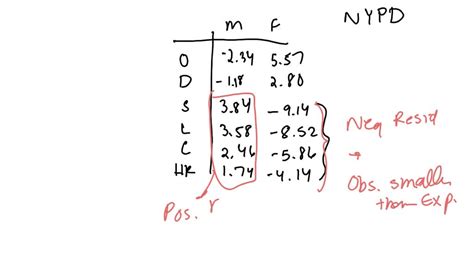 NYPD
M F
O -2.34 5.57
D -1.18 2.80
S 3.84 -9.14
L 3.58 -8.52
C 2.46 -5.86
HR 1.74 -4.14
Pos. r
Neg Resid
→
Obs. smaller
than Exp.